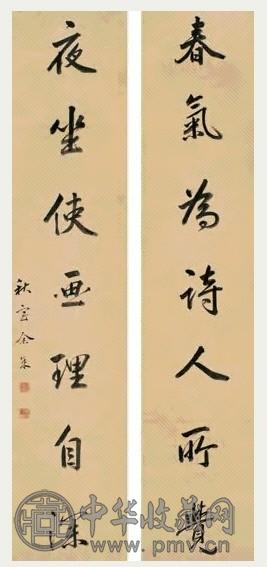 春氣為詩人所覺
夜坐使画理自深
秋室余集
中华收藏网
www.pmv.cn